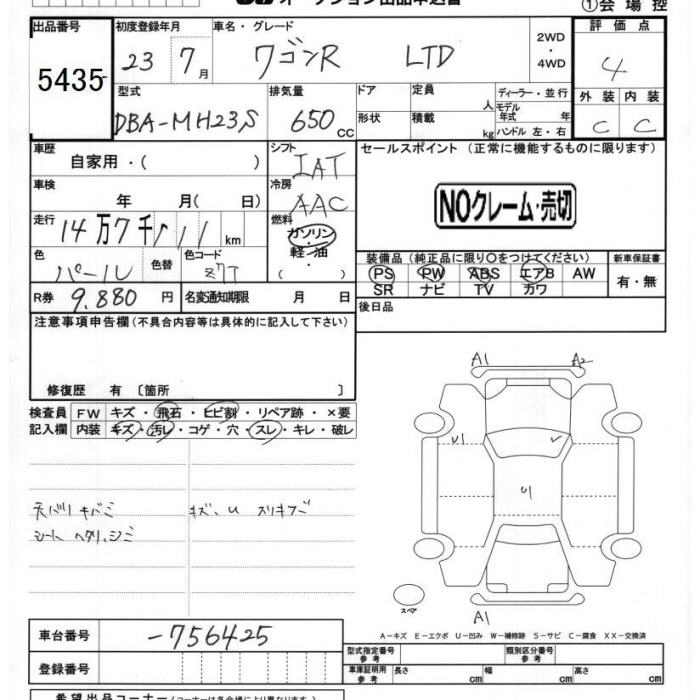 オークション出品申込書
①会場控
出品番号 初度登録年月 車名・グレード 評価点
5435 23 7月 ワゴンR LTD 2WD・4WD 4
型式 排気量 ドア 定員 人 ディーラー・並行 外装 内装
DBA-MH23S 650 CC 形状 積載 kg モデル年式 年 ハンドル 左・右 C C
車歴 自家用・( ) シフト IAT セールスポイント (正常に機能するものに限ります)
車検 年 月( 日) 冷房 AAC NOクレーム・売切
走行 14万7千 km 燃料 ガソリン・軽・油 ( )
色 パール 色替 色コード Z7T 装備品(純正品に限り○をつけてください) 新車保証書
PS PW ABS エアB AW 有・無
SR ナビ TV カワ
R券 9,880円 名変通知期限 月 日 後日品
注意事項申告欄(不具合内容等は具体的に記入して下さい)
修復歴 有 〔箇所 〕
A1 A2
検査員 FW キズ・飛石・ヒビ割・リペア跡・×要
記入欄 内装 キズ・汚レ・コゲ・穴・スレ・キレ・破レ
U1
U1
天バリ キバミ キズ、U スリキズ
シート ヘタリ、シミ
スペア
A1
車台番号 -756425
A-キズ E-エクボ U-凹み W-補修跡 S-サビ C-腐食 XX-交換済
型式指定番号 参考 類別区分番号 参考
登録番号 車庫証明用 参考 長さ cm 幅 cm 高さ cm
希望出品コーナー(コーナーは各会場により異なります)